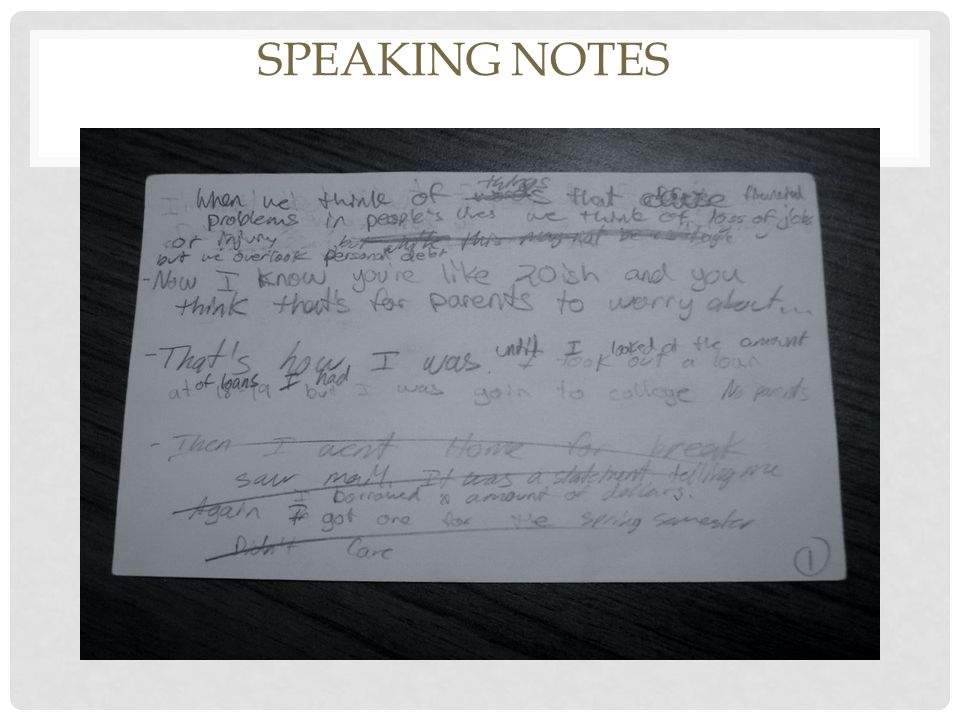 SPEAKING NOTES
things
When we think of words that cause financial
problems in people's lives we think of loss of jobs
or injury but while this may not be
but we overlook personal debt
-Now I know you're like 20ish and you
think that's for parents to worry about...
-That's how I was. until I looked at the amount
I took out a loan
of loans I had
at 18-19 but I was goin to college No parents
- Then I went Home for break
saw mail. It was a statement telling me
I borrowed x amount of dollars.
Again I got one for the spring semester
Didn't Care
1